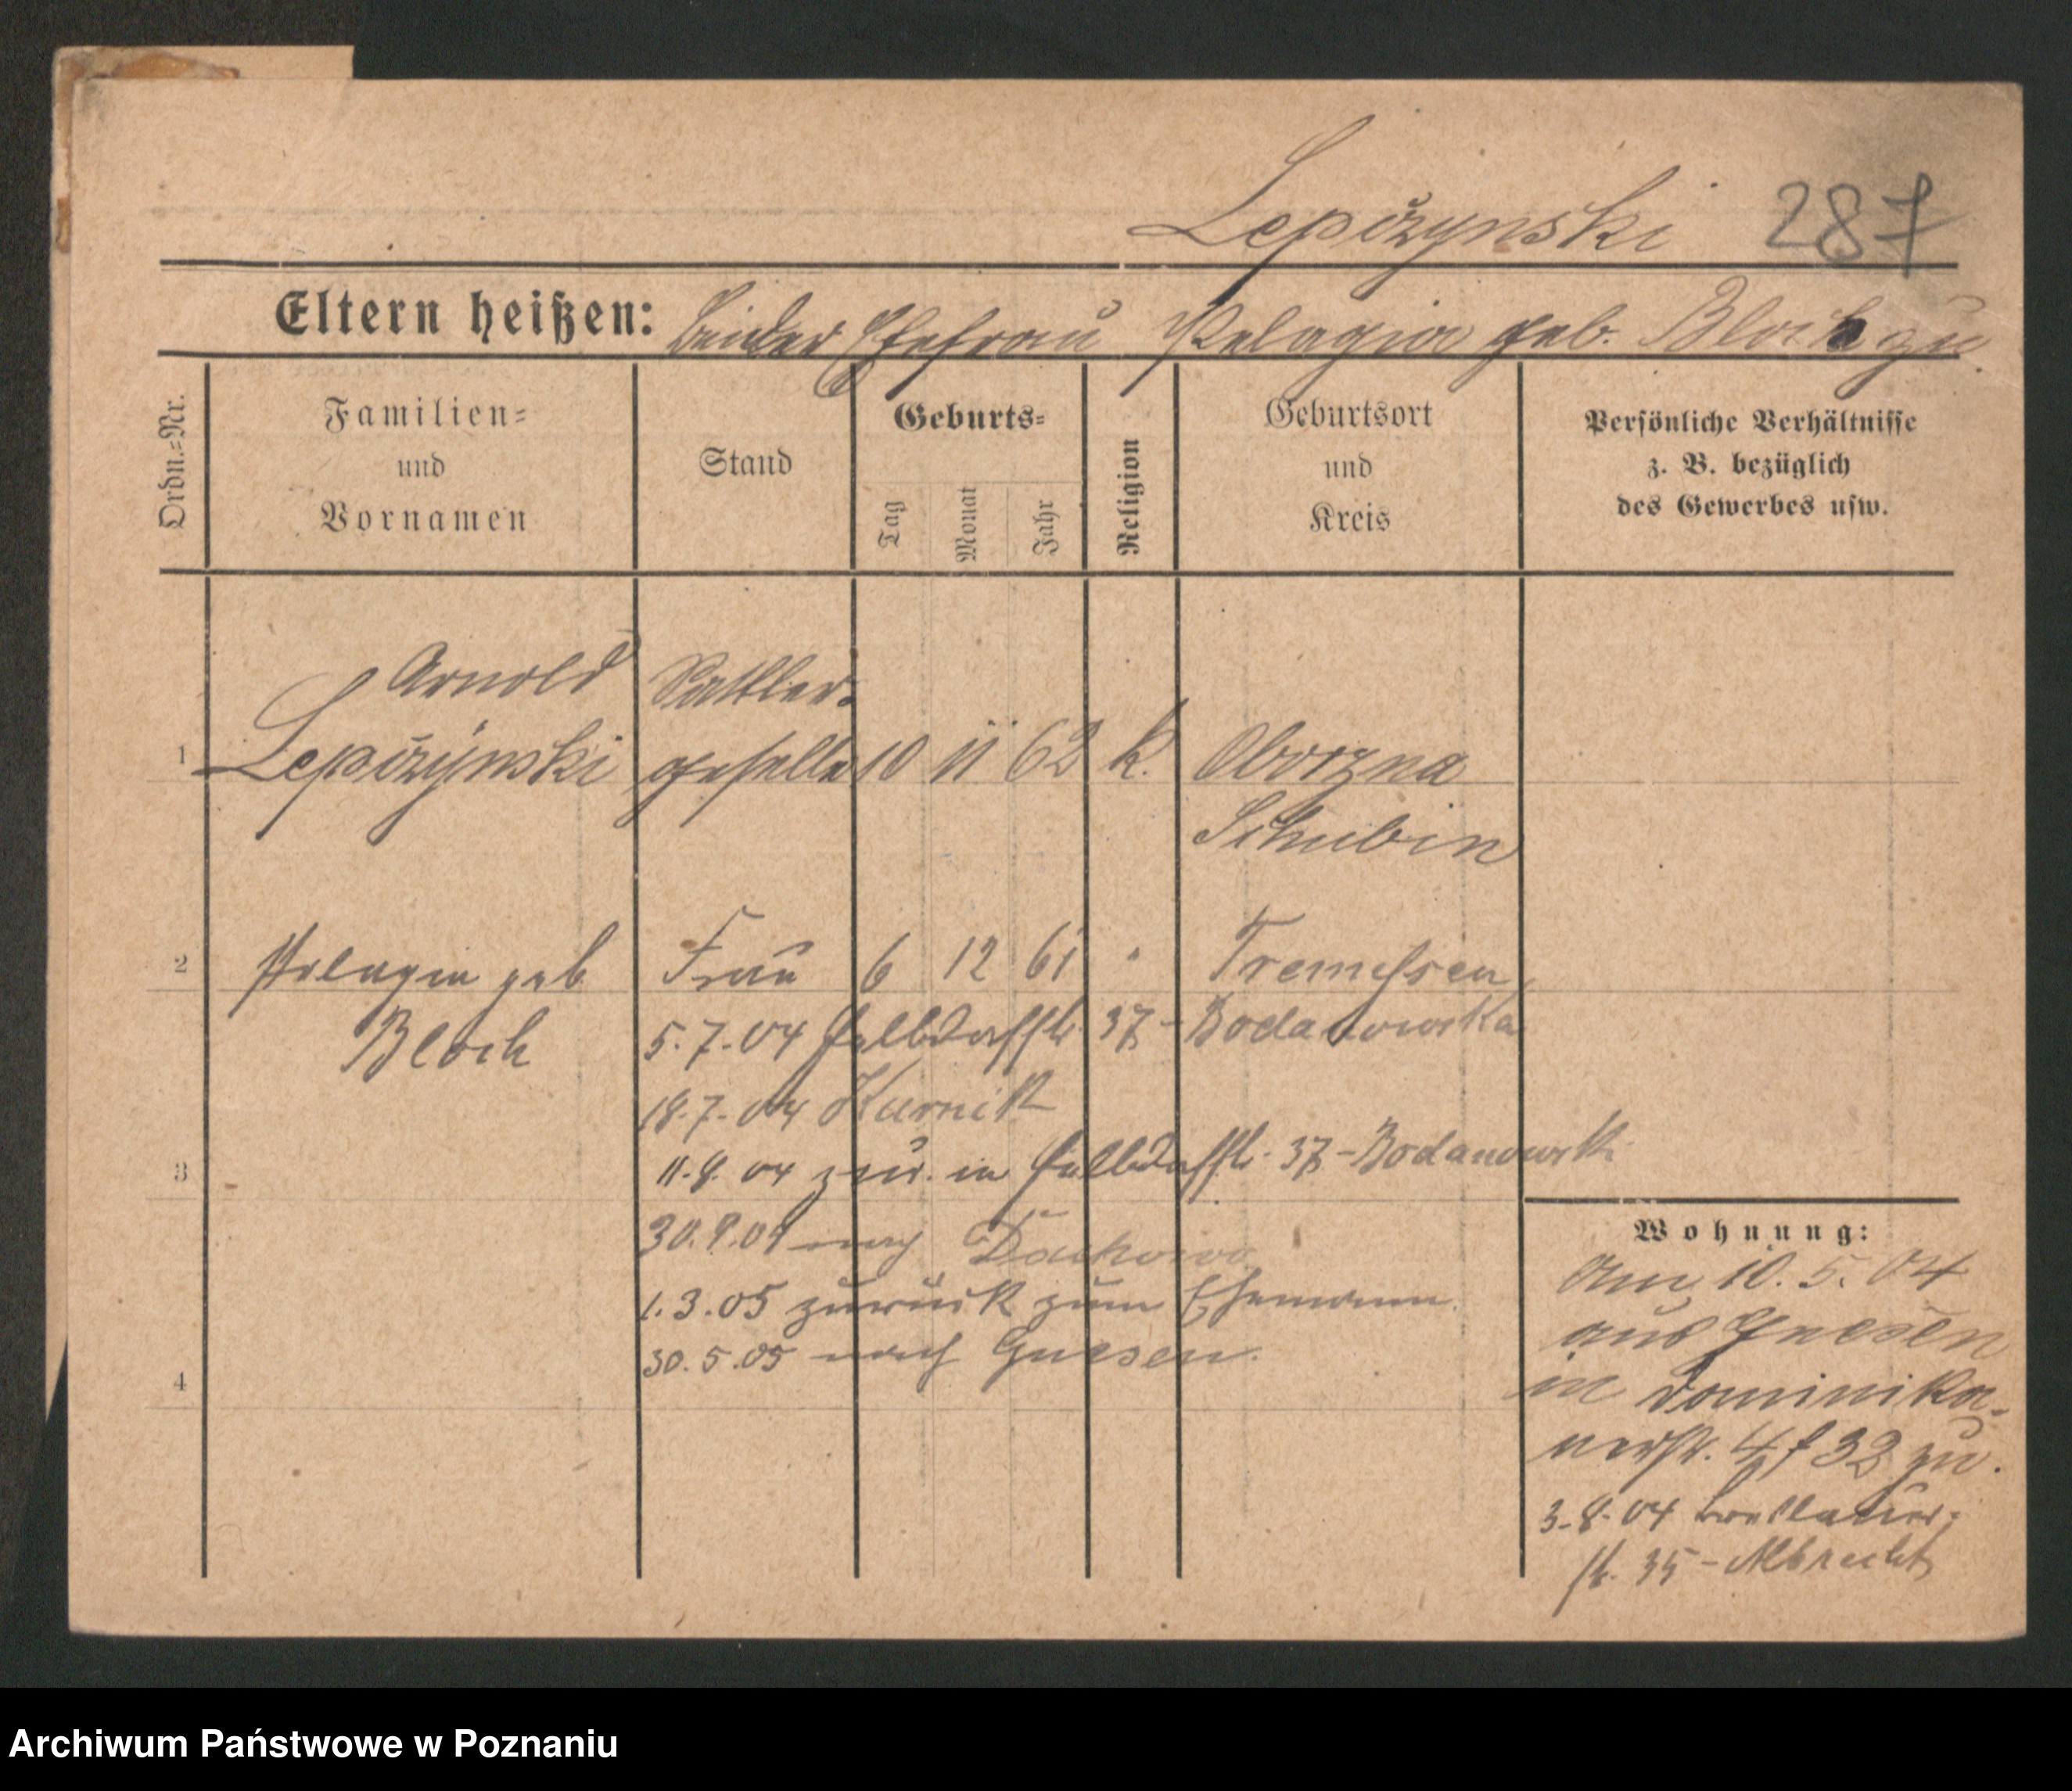 Lepczynski 287
Eltern heißen: Ehefrau Pelagia geb. Bloch zu
Ordn.=Nr.
Familien=
und
Vornamen
Stand
Geburts=
Tag
Monat
Jahr
Religion
Geburtsort
und
Kreis
Persönliche Verhältnisse
z. B. bezüglich
des Gewerbes usw.
Arnold Sattler=
1 Lepczynski geselle 10 11 62 k. Oborzna
Schubin
2 Pelagia geb Frau 6 12 61 " Tremessen
Bloch 5.7.04 Halbdorfstr. 37 - Bodanowska
18.7.04 Kurnik
3 11.8.04 zur. in Halbdorfstr. 37 - Bodanowsk
30.9.04 nach Dachowo
1.3.05 zurück zum Ehemann.
4 30.5.05 nach Gnesen.
Wohnung:
Am 10.5.04
aus Gnesen
in Dominika=
nerstr. 4 f 32 zu.
3.8.04
str. 35 - Albrecht
Archiwum Państwowe w Poznaniu